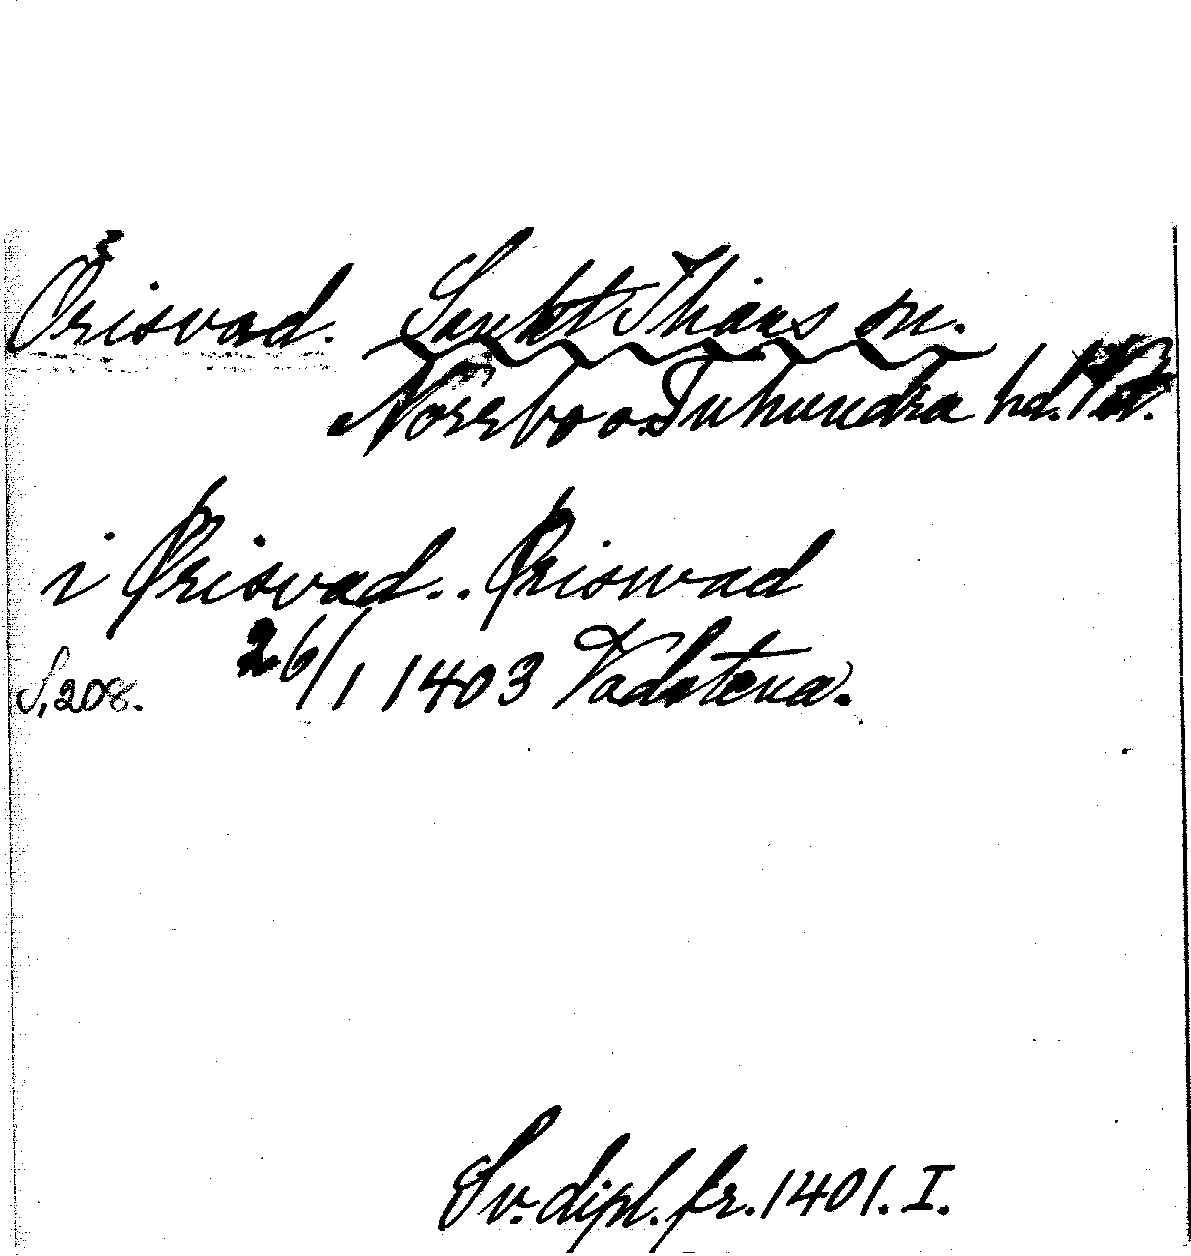 Örisvad. Sankt Thians sn.
Norrbo o. Tuhundra hd.
i Ørisvad.. Øriswad
S. 208. 26/1 1403 Vadstena.
Sv. dipl. fr. 1401. I.